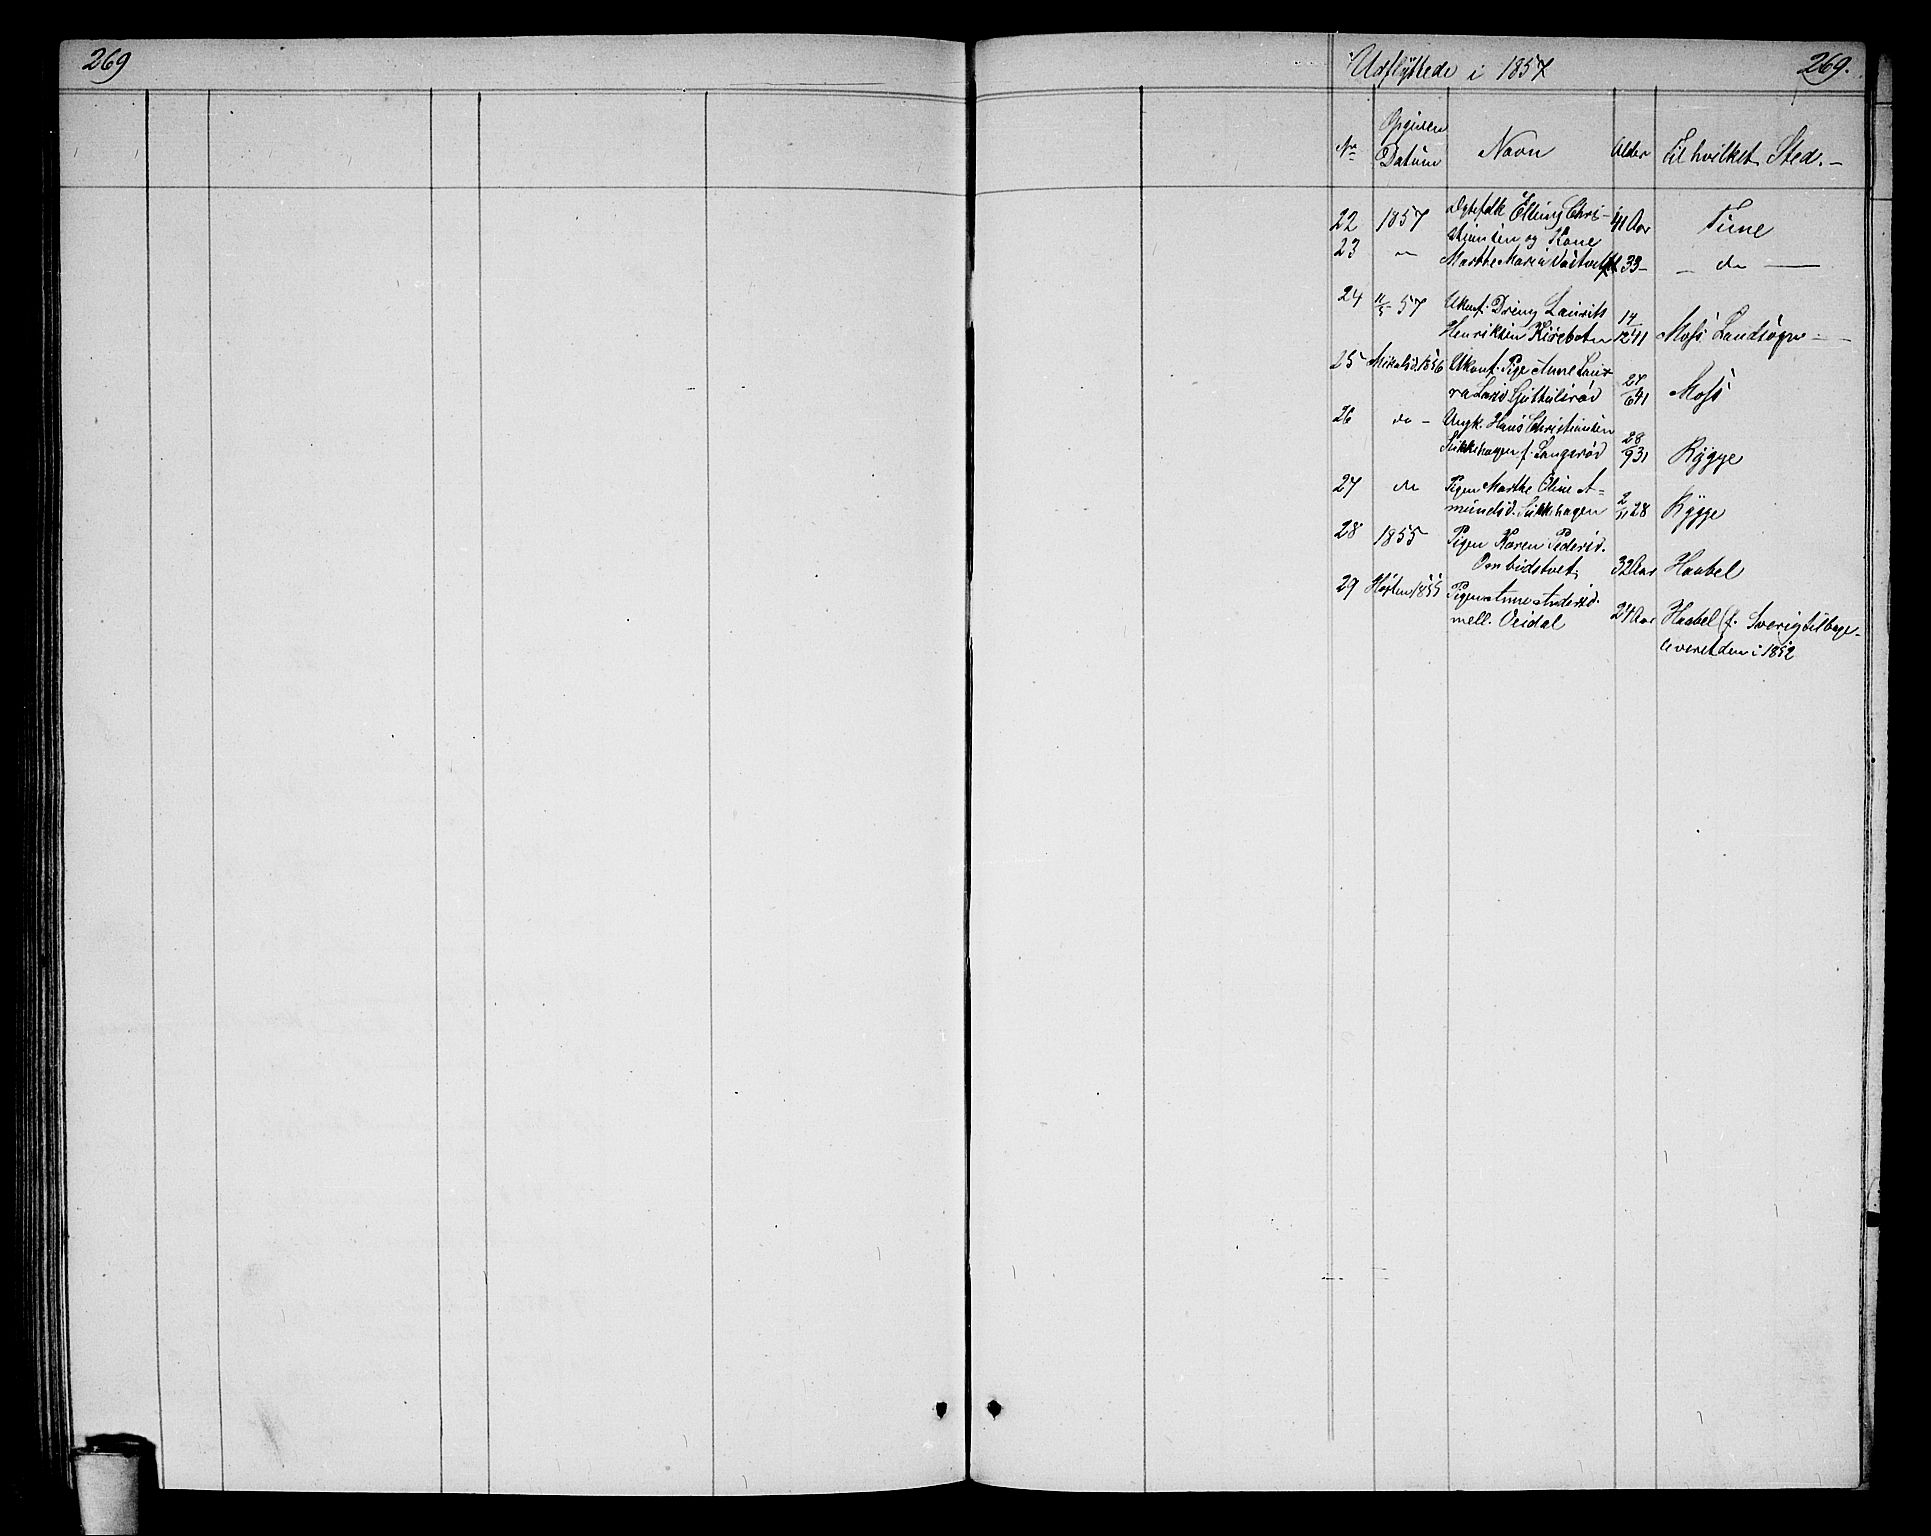 269
Udflyttede i 1857
269.
No
Opgiven
Datum
Navn
Alder
til hvilket Sted.-
22 1857 Ægtefolk Elling Chri-
stiansen og Kone 41 Aar Tune
23 " Marthe Maria 33- - do -
24 11/5 57 Ukonf. Dreng Laurits
Henriksen Kirebøen 14/12 41 Moss Landsogn -
25 Mikalsd. 1856 Ukonf. Pige Anne Lau-
ra Larsd 27/6 41 Moss
26 do - Ungk. Hans Christiansen
Sukkehagen f. Langerød 28/9 31 Rygge
27 do Pigen Marthe Oline A-
mundsd. Sukkehagen 2/11 28 Rygge
28 1855 Pigen Karen Pedersd.
Ombidstvet 32 Aar Haabel
29 Høsten 1855 Pigen Anne Andersd.
mell. Veidal 24 Aar Haabel (f. Sverig tilbage-
leveret den i 1852